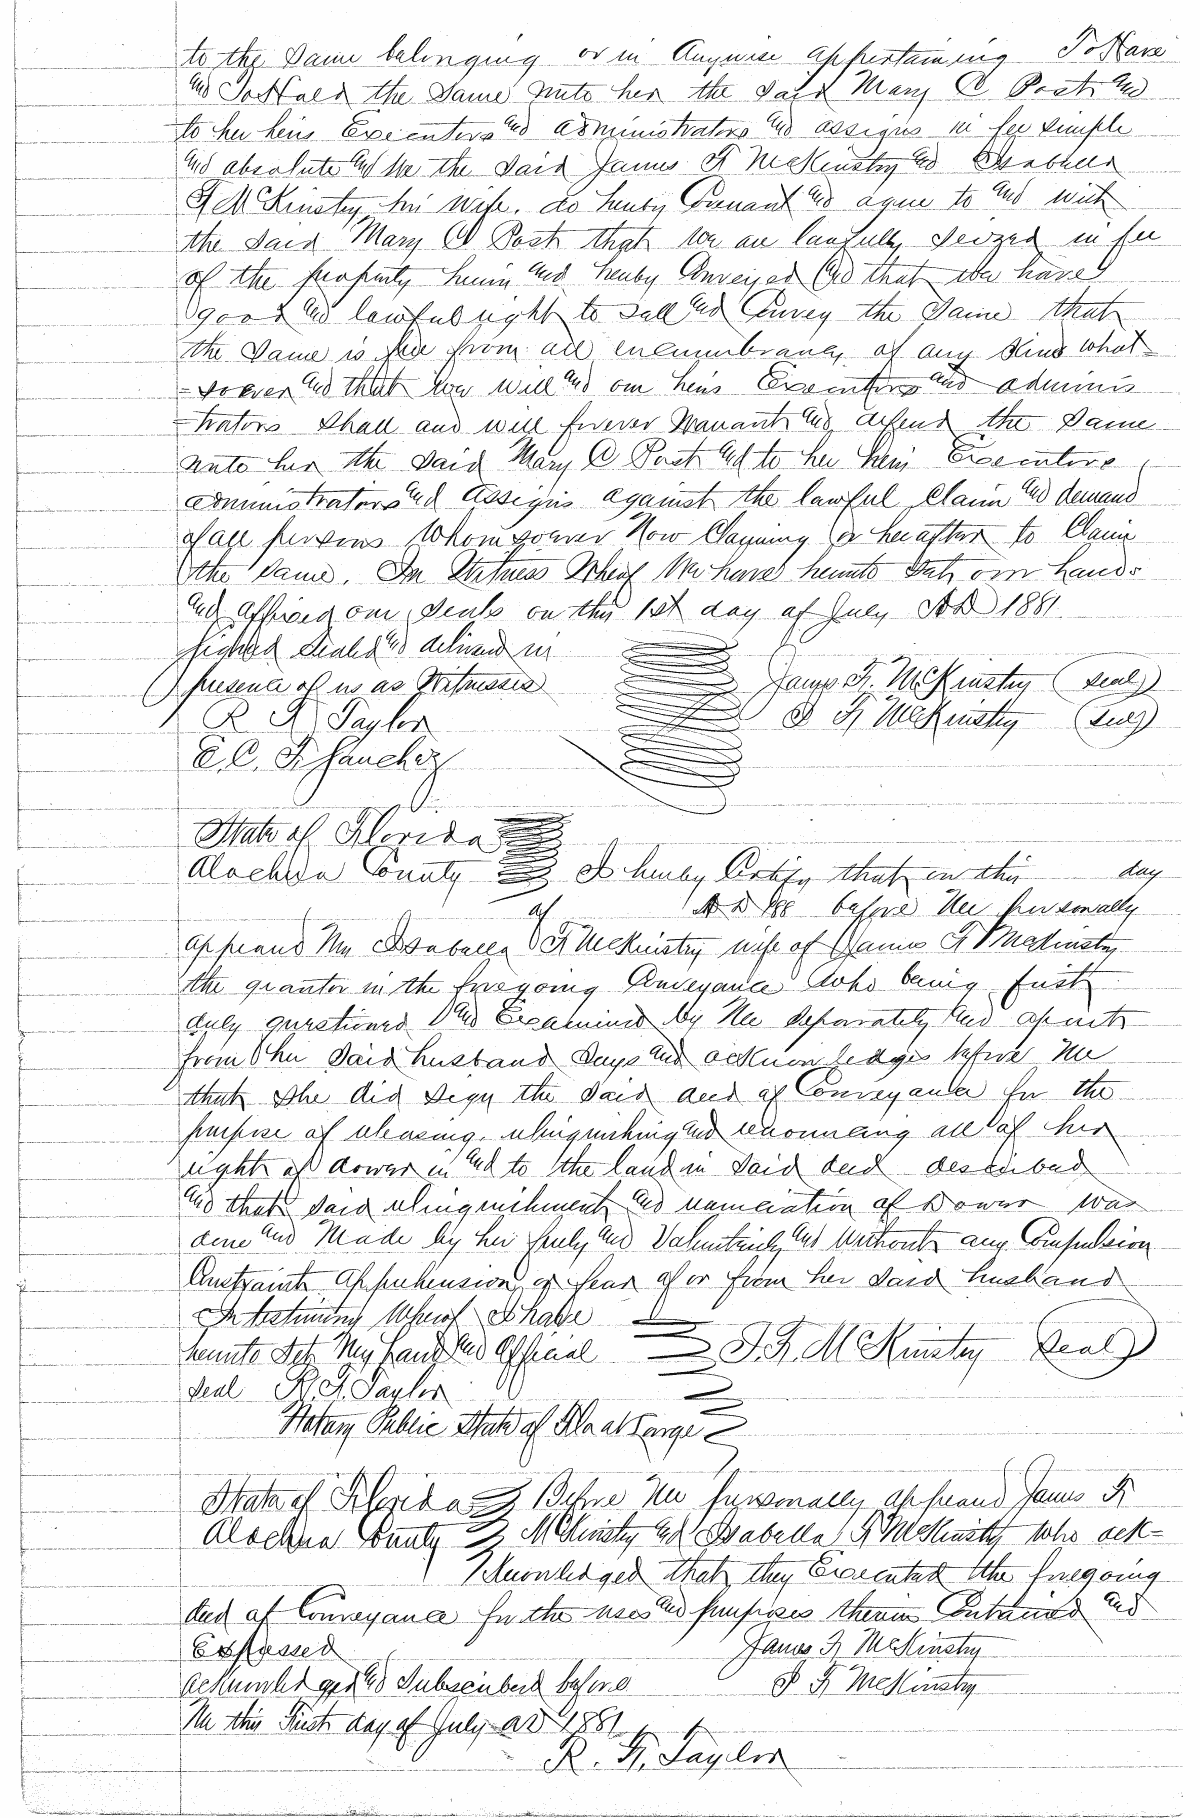 to the same belonging or in Anywise appertaining To Have
and To Hold the Same unto her the said Mary C Post and
to her heirs Executors and administrators and assigns in fee simple
and absolute and We the Said James F McKinstry and Isabella
F McKinstry his wife. do hereby Covenant and agree to and with
the said Mary C Post that we are lawfully Seized in fee
of the property herein and hereby Conveyed and that we have
good and lawful right to sell and Convey the Same that
the Same is free from all encumbrance of any Kind what-
-soever and that we will and our heirs Executors and adminis
-trators Shall and will forever Warrant and defend the Same
unto her the Said Mary C Post and to her heirs Executors,
administrators and assigns against the lawful Claim and demand
of all persons Whomsoever Now Claiming or hereafter to Claim
the Same. In Witness Whereof We have hereunto Set our hands
and affixed our Seals on this 1st day of July AD 1881.
Signed Sealed and delivered in
presence of us as Witnesses James F. McKinstry (Seal)
R F Taylor I F McKinstry (Seal)
E. C. F. Sanchez
State of Florida
Alachua County I hereby Certify that on this day
of A D 188 before Me personally
appeared Mrs Isabella F McKinstry wife of James F McKinstry
the grantor in the foregoing Conveyance who being first
duly questioned and Examined by Me Separately and apart
from her Said husband Says and acknowledges before Me
that She did Sign the Said deed of Conveyance for the
purpose of releasing. relinquishing and renouncing all of her
right of dower in and to the land in Said deed described
and that said relinquishment and renunciation of Dower was
done and Made by her freely and Voluntarily and Without any Compulsion
Constraint apprehension or fear of or from her Said husband
In testimony Whereof I have
hereunto Set My hand and Official I. F. McKinstry (Seal)
Seal R. F. Taylor
Notary Public State of Fla at Large
State of Florida Before Me personally appeared James F
Alachua County McKinstry and Isabella F McKinstry who ack-
Knowledged that they Executed the foregoing
deed of Conveyance for the uses and purposes therein Contained and
Expressed James F McKinstry
acknowledged and Subscribed before I F McKinstry
Me this First day of July AD 1881
R. F. Taylor